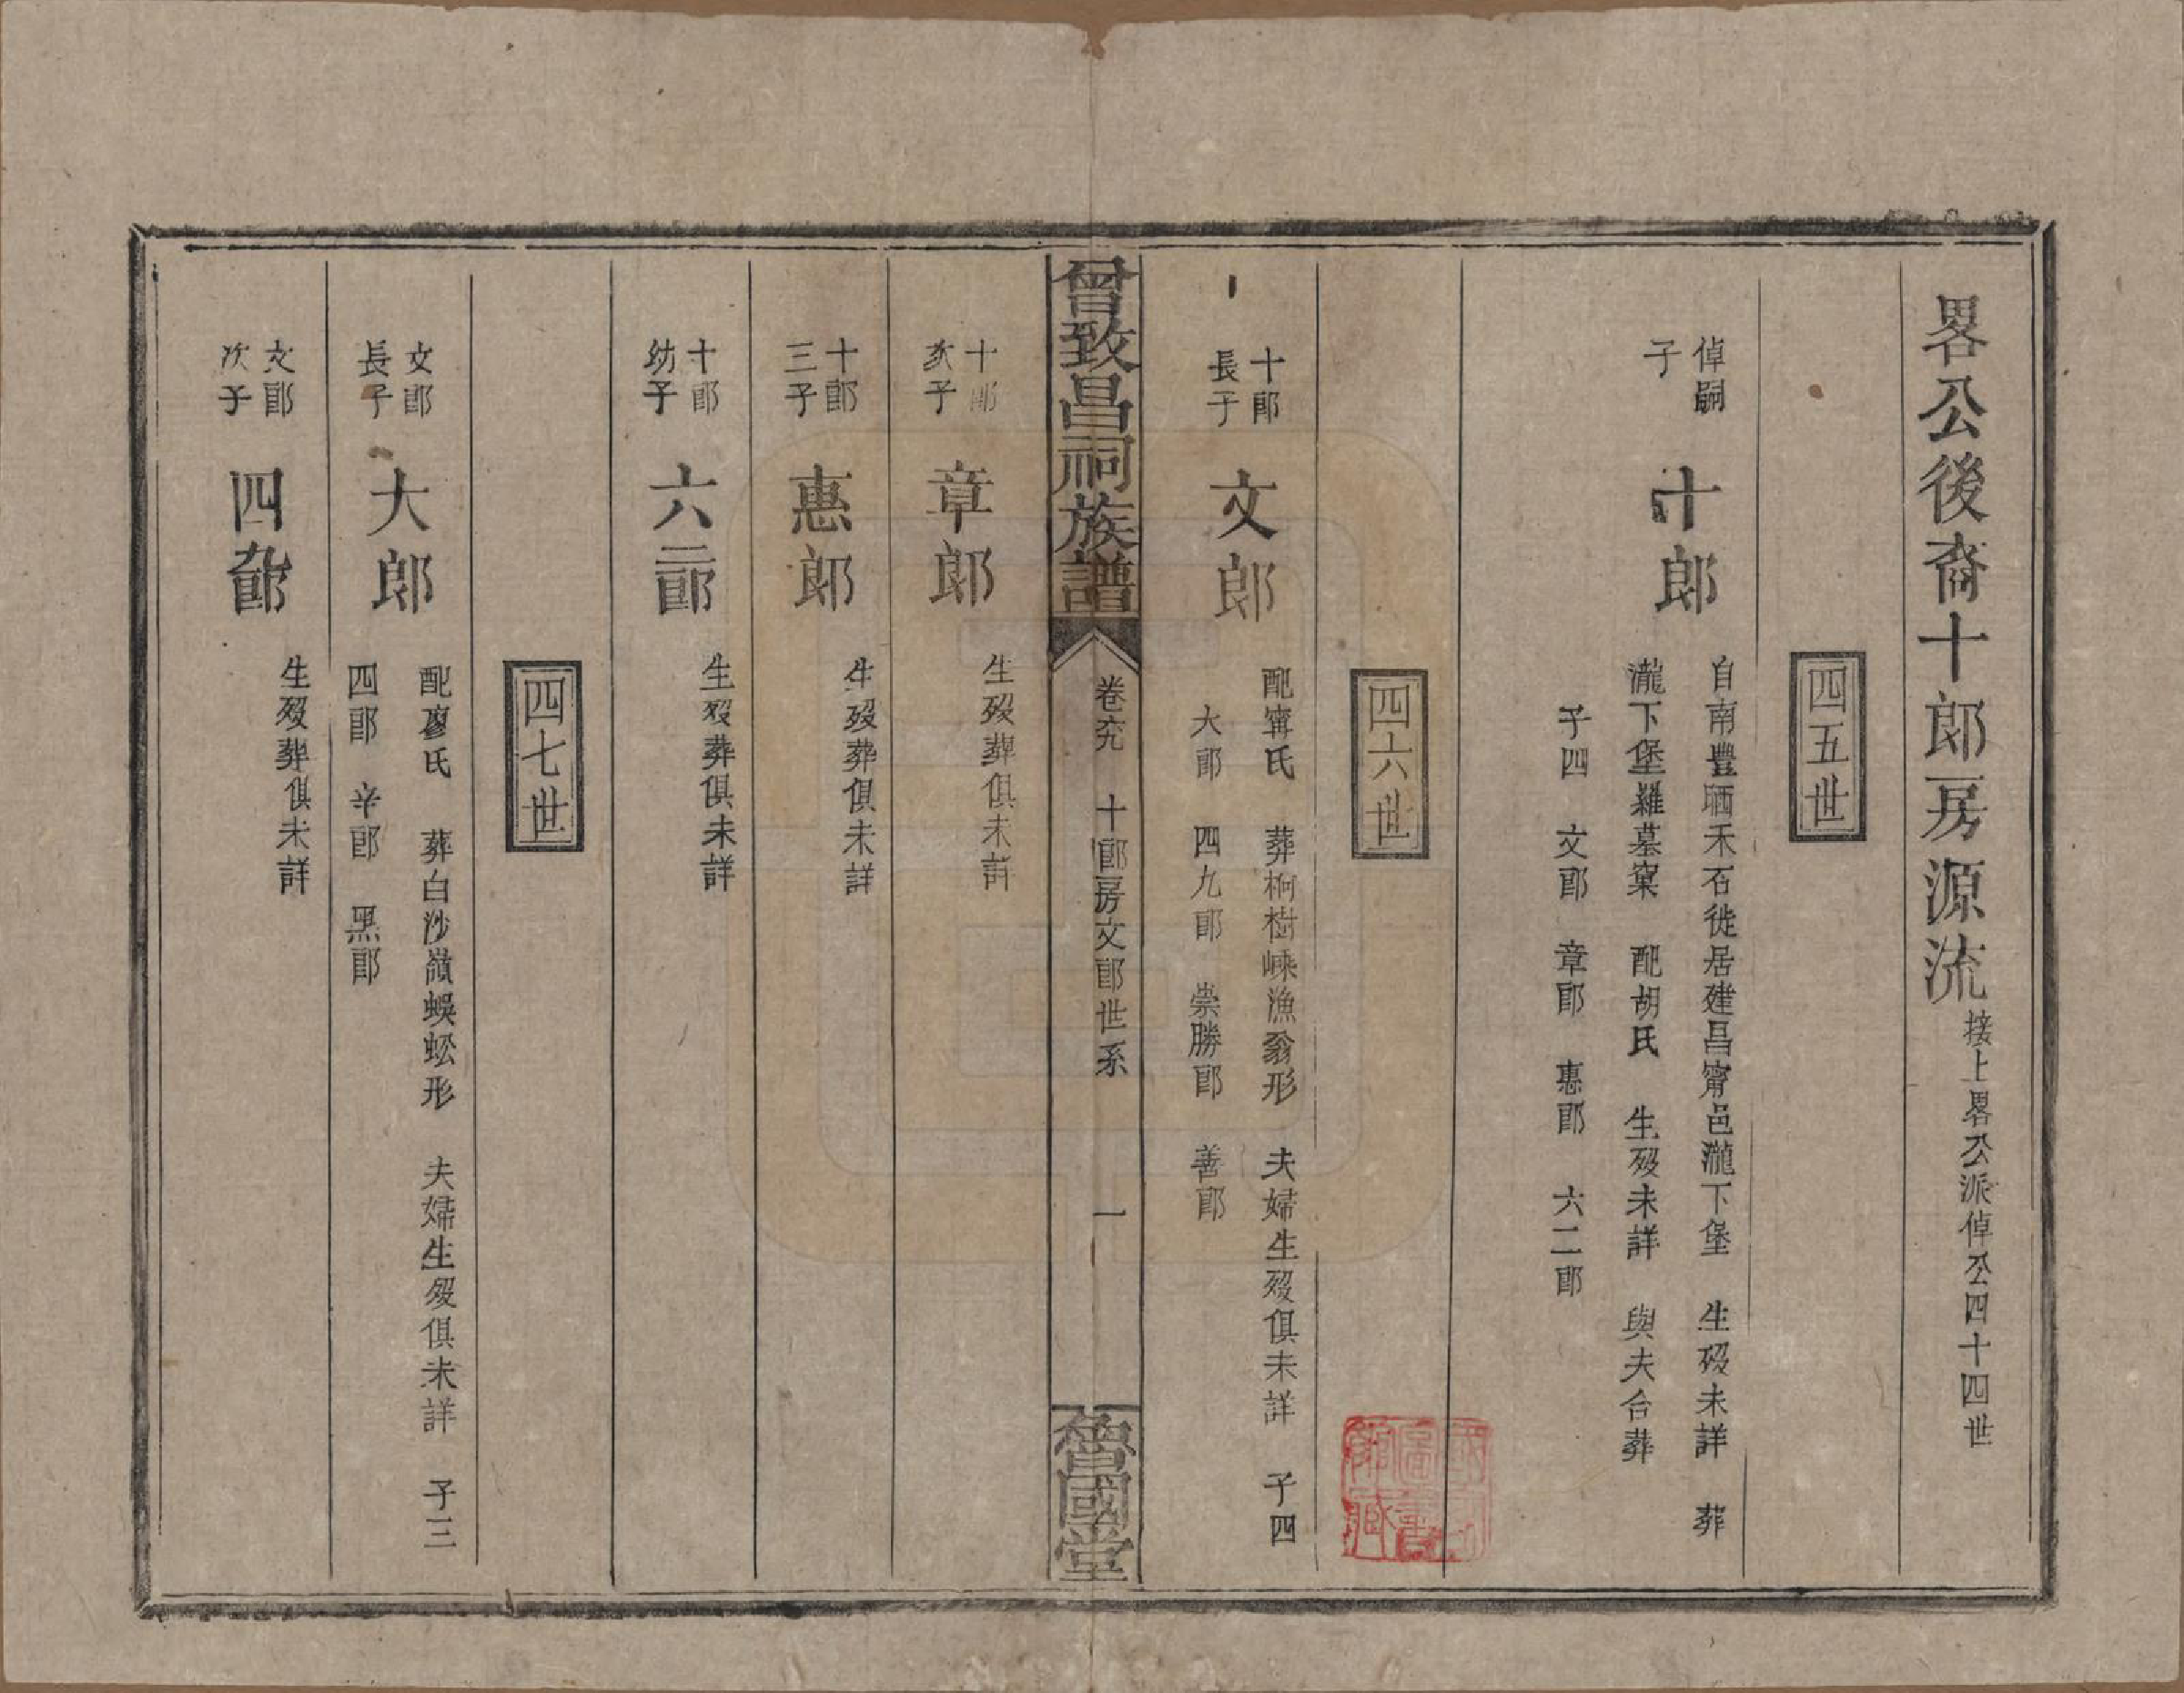 畧公後裔十郎一房源流 接上畧公派倬公四十四世
四五世
倬嗣
子
十郎
自南豐晒禾石徙居建昌甯邑瀧下堡 生殁未詳 葬
瀧下堡羅墓窠 配胡氏 生殁未詳 與夫合葬
子四 文郎 章郎 惠郎 六二郎
四六世
十郎
長子
文郎
配甯氏 葬桐樹嵊漁翁形 夫婦生殁俱未詳 子四
大郎 四九郎 崇勝郎 善郎
曾致昌祠族譜
卷六九 十郎房文郎世系 一
魯國堂
十郎
次子
章郎
生殁葬俱未詳
十郎
三子
惠郎
生殁葬俱未詳
十郎
幼子
六二郎
生殁葬俱未詳
四七世
文郎
長子
大郎
配廖氏 葬白沙嶺蜈蚣形 夫婦生殁俱未詳 子三
四郎 辛郎 黑郎
文郎
次子
四九郎
生殁葬俱未詳